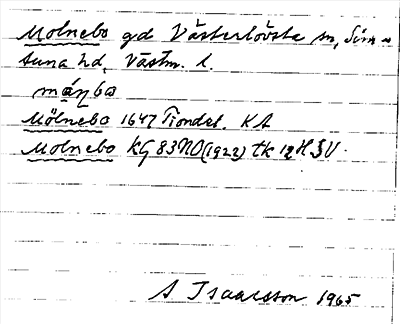 Molnebo gd Västerlövsta sn, Sim-
tuna hd, Västm. l.
Mölnebo 1647 Tiondel. KA
Molnebo KG 83NO (1922) tk 12H3V
A Isaacsson 1965